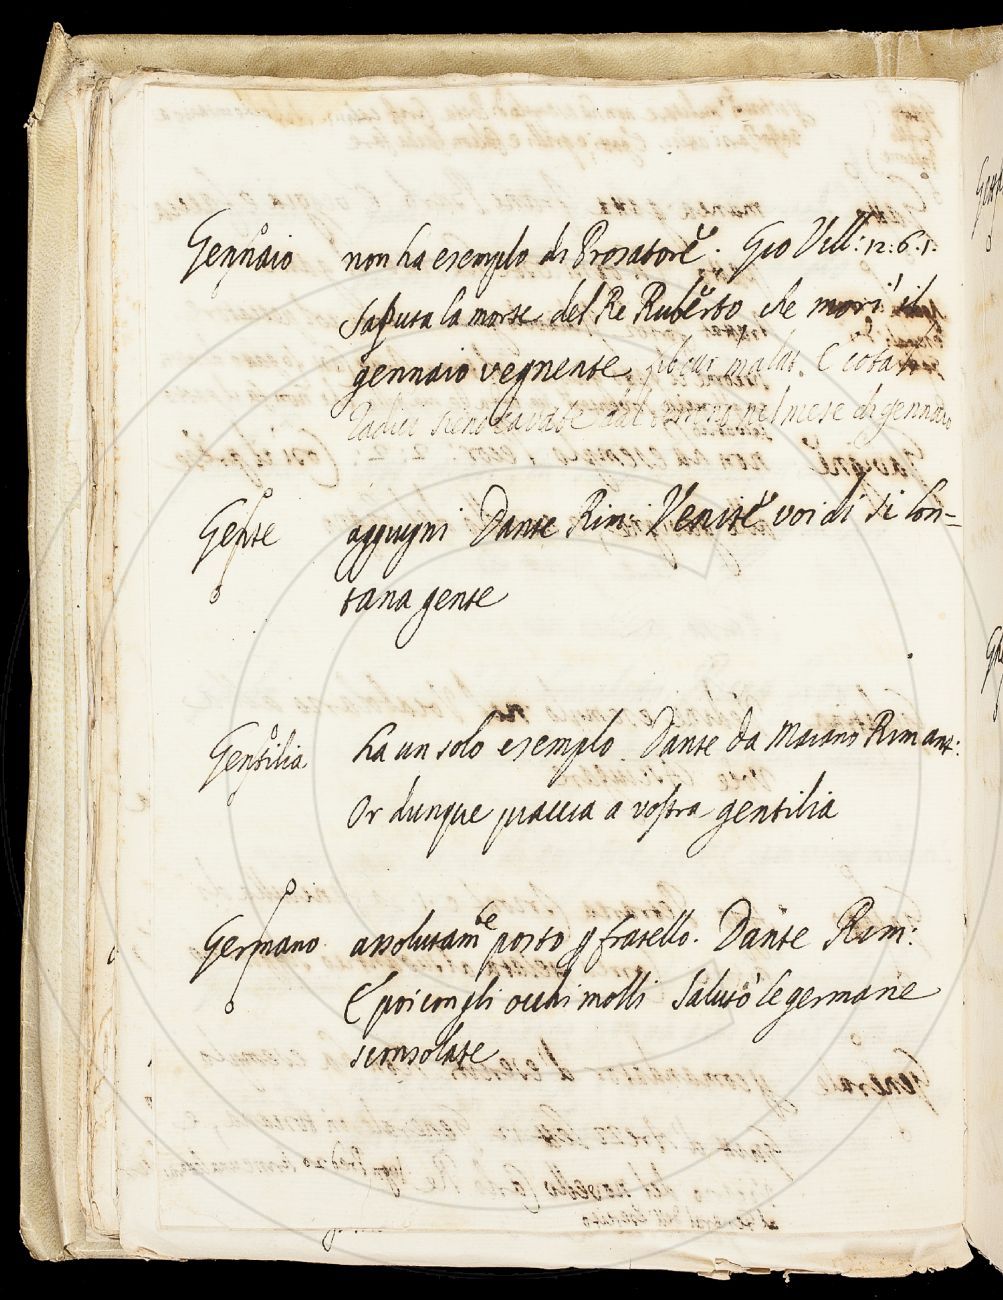 Gennaio non ha esemplo di Prosatore. Gio Vill: 12: 6: 1:
Saputa la morte del Re Ruberto che morì il
gennaio vegnente E cosa
nel mese di gennaio
Gente aggiugni Dante Rim: Venite voi di sì lon=
tana gente
Gentilia ha un solo esemplo. Dante da Maiano Rim ant:
Or dunque piaccia a vostra gentilia
Germano assolutam.te posto p fratello. Dante Rim:
E poi con gli occhi molli Salutò le germane
sconsolate